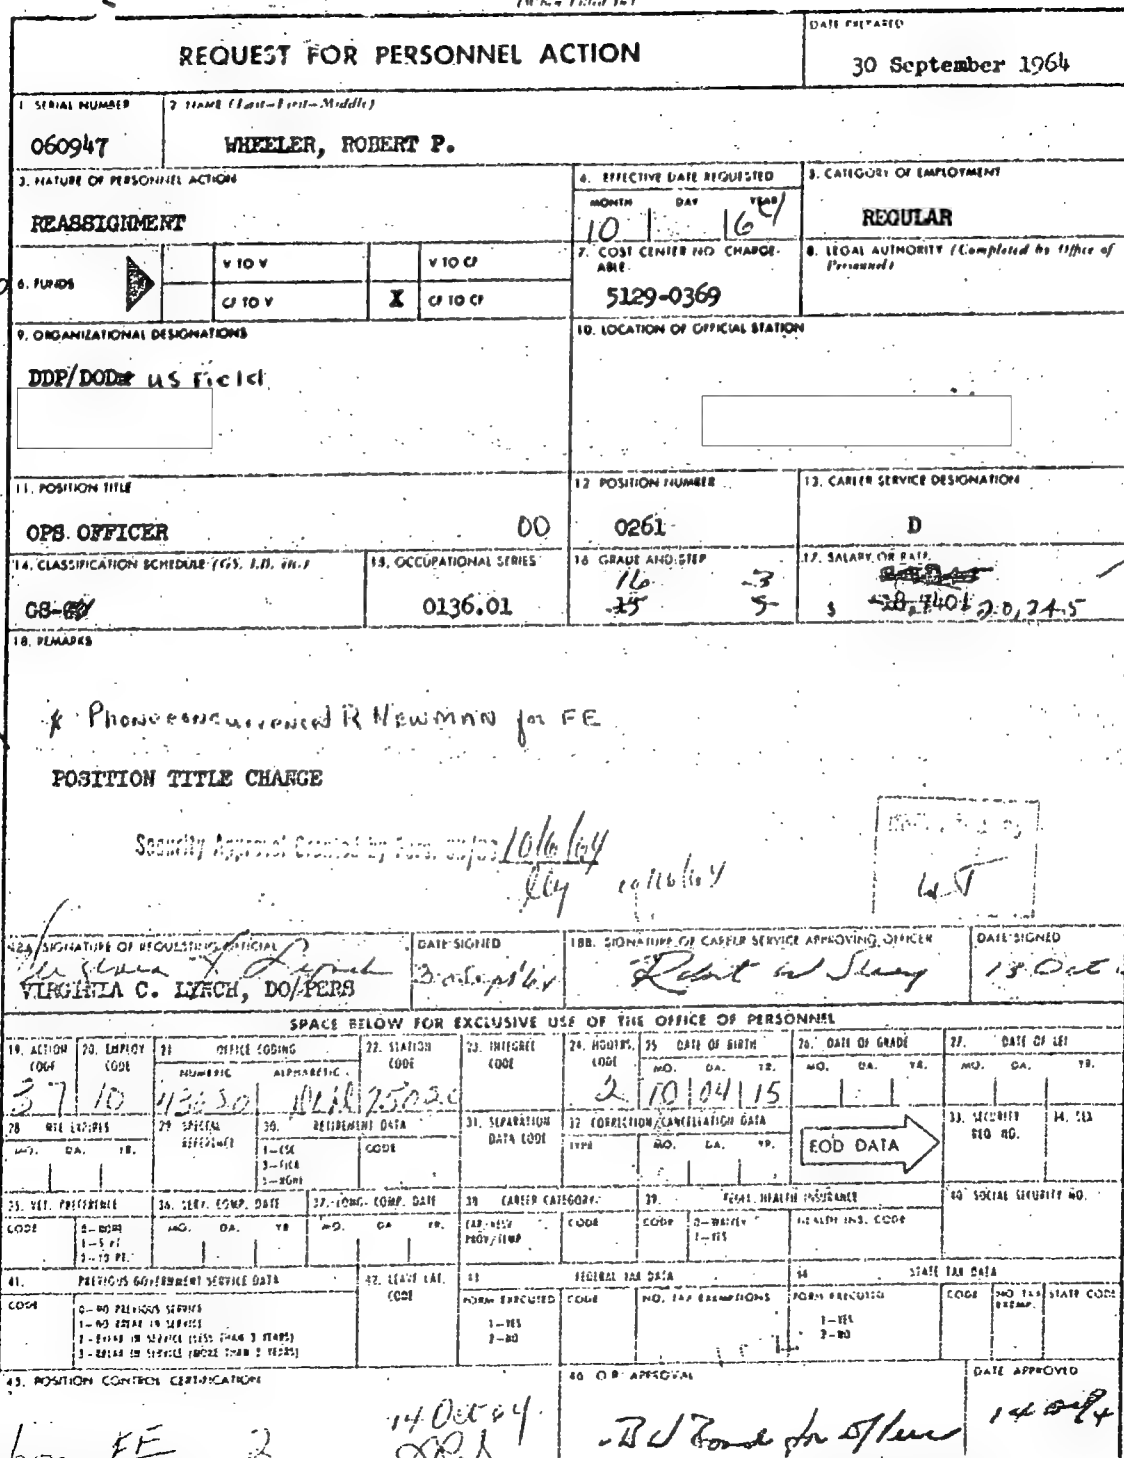 (When Filled In)
REQUEST FOR PERSONNEL ACTION
DATE PREPARED
30 September 1964
1. SERIAL NUMBER
2. NAME (Last-First-Middle)
060947
WHEELER, ROBERT P.
3. NATURE OF PERSONNEL ACTION
REASSIGNMENT
4. EFFECTIVE DATE REQUESTED
MONTH DAY YEAR
10 64
5. CATEGORY OF EMPLOYMENT
REGULAR
6. FUNDS
V TO V
V TO CF
CF TO V
X CF TO CF
7. COST CENTER NO. CHARGE-
ABLE
5129-0369
8. LEGAL AUTHORITY (Completed by Office of
Personnel)
9. ORGANIZATIONAL DESIGNATIONS
DDP/DOD US Field
10. LOCATION OF OFFICIAL STATION
11. POSITION TITLE
OPS OFFICER DO
12. POSITION NUMBER
0261
13. CAREER SERVICE DESIGNATION
D
14. CLASSIFICATION SCHEDULE (GS, LB, etc.)
GS
15. OCCUPATIONAL SERIES
0136.01
16. GRADE AND STEP
16 3
15 5
17. SALARY OR RATE
$ 18,740 20,245
18. REMARKS
* Phone concurrence R NEWMAN for FE
POSITION TITLE CHANGE
Security Approval Granted by 10/6/64
10/16/64
WT
SIGNATURE OF REQUESTING OFFICIAL
VIRGINIA C. LYNCH, DO/PERS
DATE SIGNED
30 Sept 64
18B. SIGNATURE OF CAREER SERVICE APPROVING OFFICER
DATE SIGNED
13 Oct
SPACE BELOW FOR EXCLUSIVE USE OF THE OFFICE OF PERSONNEL
19. ACTION
CODE
37
20. EMPLOY
CODE
10
21. OFFICE CODING
NUMERIC ALPHABETIC
43030
22. STATION
CODE
75020
23. INTEGREE
CODE
24. HDQTRS.
CODE
2
25. DATE OF BIRTH
MO. DA. YR.
10 04 15
26. DATE OF GRADE
MO. DA. YR.
27. DATE OF LEI
MO. DA. YR.
28. NTE EXPIRES
MO. DA. YR.
29. SPECIAL
REFERENCE
30. RETIREMENT DATA
1-CSC
3-FICA
5-NONE
CODE
31. SEPARATION
DATA CODE
32. CORRECTION/CANCELLATION DATA
TYPE MO. DA. YR.
EOD DATA
33. SECURITY
REQ. NO.
34. SEX
35. VET. PREFERENCE
CODE
0-NONE
1-5 PT.
2-10 PT.
36. SERV. COMP. DATE
MO. DA. YR.
37. LONG. COMP. DATE
MO. DA. YR.
38. CAREER CATEGORY
CAR/RESV
PROV/TEMP
CODE
39. FEGLI/HEALTH INSURANCE
CODE
0-WAIVER
1-YES
HEALTH INS. CODE
40. SOCIAL SECURITY NO.
41. PREVIOUS GOVERNMENT SERVICE DATA
CODE
0-NO PREVIOUS SERVICE
1-NO BREAK IN SERVICE
2-BREAK IN SERVICE (LESS THAN 3 YEARS)
3-BREAK IN SERVICE (MORE THAN 3 YEARS)
42. LEAVE CAT.
CODE
43. FEDERAL TAX DATA
FORM EXECUTED
1-YES
2-NO
CODE
NO. TAX EXEMPTIONS
44. STATE TAX DATA
FORM EXECUTED
1-YES
2-NO
CODE
NO. TAX
EXEMP.
STATE CODE
45. POSITION CONTROL CERTIFICATION
FE 2 14 Oct 64
46. O.P. APPROVAL
DATE APPROVED
14 Oct 64